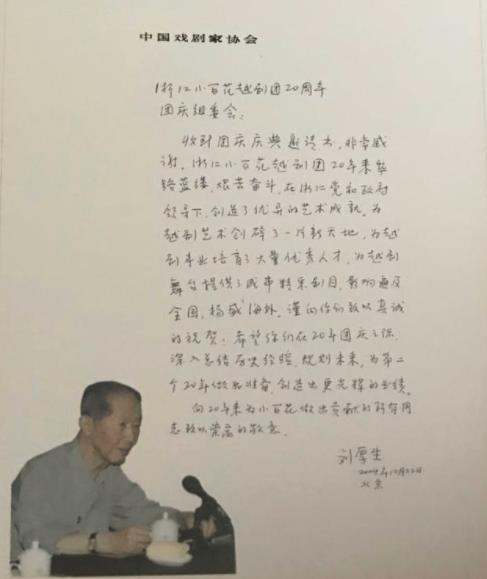 中国戏剧家协会
浙江小百花越剧团20周年
团庆组委会：
收到团庆庆典邀请书，非常感
谢。浙江小百花越剧团20年来筚
路蓝缕，艰苦奋斗，在浙江党和政府
领导下，创造了优异的艺术成就，为
越剧艺术创辟了一片新天地，为越
剧事业培育了大量优秀人才，为越剧
舞台提供了成串精采剧目，影响遍及
全国，扬威海外。谨向你们致以真诚
的祝贺！希望你们在20年团庆之际，
深入总结历史经验，规划未来，为第二
个20年做出准备，创造出更光辉的业绩。
向20年来为小百花做出贡献的所有同
志致以崇高的敬意。
刘厚生
2004年10月22日
北京